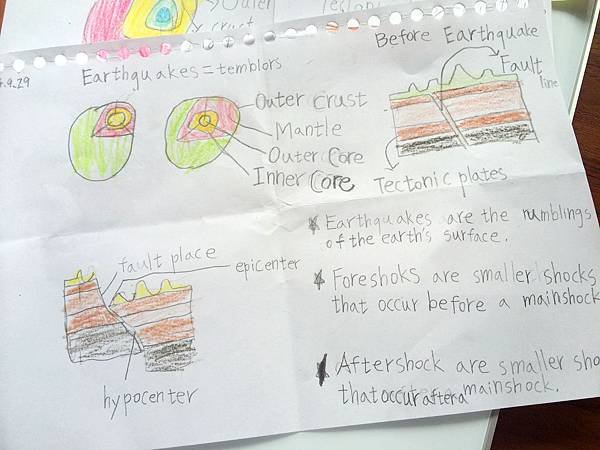 Outer
crust
4.9.29
Earthquakes = temblors
Outer Crust
Mantle
Outer Core
Inner Core
Before Earthquake
Fault
line
Tectonic plates
fault place
epicenter
hypocenter
Earthquakes are the rumblings
of the earth's surface.
Foreshoks are smaller shocks
that occur before a mainshock
Aftershock are smaller sho
that occur after a mainshock.